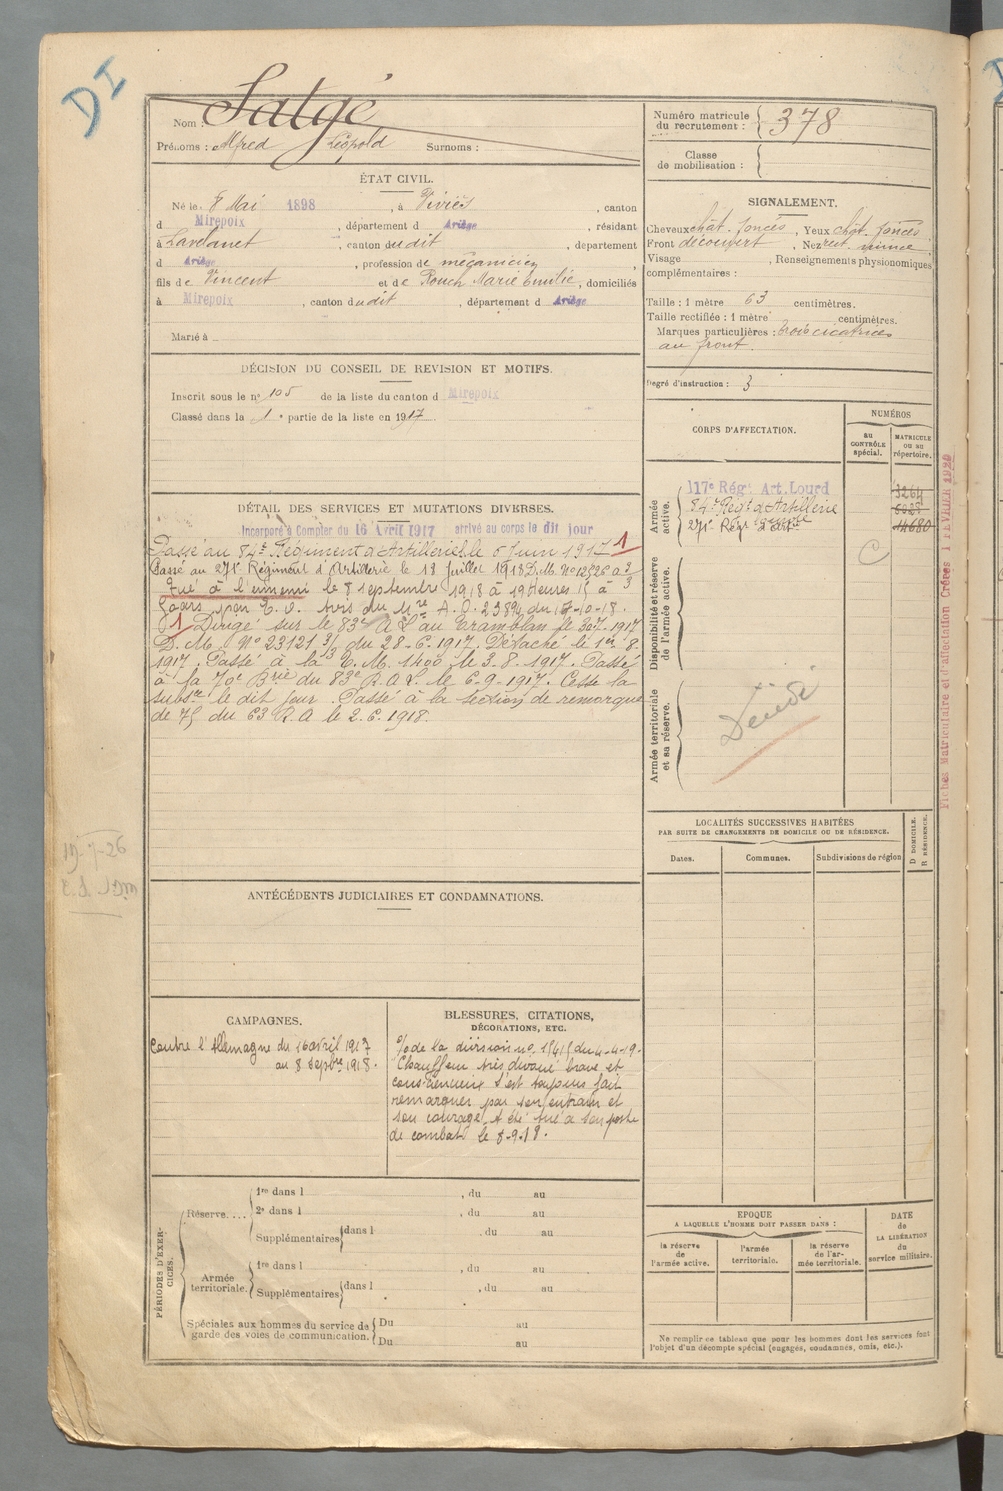 DI
Nom : Satgé
Prénoms : Alfred Léopold Surnoms :
Numéro matricule du recrutement : 378
Classe de mobilisation :
ÉTAT CIVIL.
Né le 8 Mai 1898, à Viviès, canton
d Mirepoix, département d Ariège, résidant
à Lavelanet, canton dudit, département
d Ariège, profession de mécanicien
fils de Vincent et de Pouch Marie Emilie, domiciliés
à Mirepoix, canton dudit, département d Ariège
Marié à
SIGNALEMENT.
Cheveux chât. foncés, Yeux chât. foncés
Front découvert, Nez rect. mince
Visage , Renseignements physionomiques
complémentaires :
Taille : 1 mètre 63 centimètres.
Taille rectifiée : 1 mètre centimètres.
Marques particulières : trois cicatrices
au front.
Degré d'instruction : 3
DÉCISION DU CONSEIL DE REVISION ET MOTIFS.
Inscrit sous le n° 105 de la liste du canton d Mirepoix
Classé dans la 1e partie de la liste en 1917
CORPS D'AFFECTATION.
NUMÉROS
au CONTRÔLE spécial.
MATRICULE ou au répertoire.
Armée active.
117e Régt Art. Lourd 3264
84e Régt d'Artillerie 6028
271e Régt d'Artie 14680
C
Disponibilité et réserve de l'armée active.
Armée territoriale et sa réserve.
Décédé
Fiches Matriculaire et d'affectation Créées 1 FEVRIER 1920
DÉTAIL DES SERVICES ET MUTATIONS DIVERSES.
Incorporé à Compter du 16 Avril 1917 arrivé au corps le dit jour
Passé au 84e Régiment d'Artillerie le 6 Juin 1917 1
Passé au 271e Régiment d'Artillerie le 18 Juillet 1918 D.M. N° 12526 2/3
Tué à l'ennemi le 8 septembre 1918 à 19 heures 15 à
par E. O. Avis du A.D. 23894 du 17-10-18.
1 Dirigé sur le 83e A L au Tramblan le 30.7.1917
D. M. N° 23121 3/3 du 28-6-1917. Détaché le 1er 8.
1917. Passé à la T. M. 1400 le 3-8-1917. Passé
à la 70e Brie du 83e R.A.L. le 6-9-1917. Cesse la
subsce le dit jour. Passé à la section de remorque
de 75 du 63 R.A le 2.6.1918.
19-7-26
LOCALITÉS SUCCESSIVES HABITÉES
PAR SUITE DE CHANGEMENTS DE DOMICILE OU DE RÉSIDENCE.
Dates.
Communes.
Subdivisions de région
D DOMICILE.
R RÉSIDENCE.
ANTÉCÉDENTS JUDICIAIRES ET CONDAMNATIONS.
CAMPAGNES.
Contre l'Allemagne du 16 avril 1917
au 8 septbre 1918.
BLESSURES, CITATIONS,
DÉCORATIONS, ETC.
O/ de la division n° 15415 du 4-4-19.
Chauffeur très dévoué brave et
consciencieux s'est toujours fait
remarquer par son entrain et
son courage. A été tué à son poste
de combat le 8-9-18.
PÉRIODES D'EXERCICES.
Réserve....
1re dans l , du au
2e dans l , du au
Supplémentaires dans l , du au
Armée territoriale.
1re dans l , du au
Supplémentaires dans l , du au
Spéciales aux hommes du service de garde des voies de communication.
Du au
Du au
EPOQUE
A LAQUELLE L'HOMME DOIT PASSER DANS :
la réserve de l'armée active.
l'armée territoriale.
la réserve de l'armée territoriale.
DATE de LA LIBÉRATION du service militaire.
Ne remplir ce tableau que pour les hommes dont les services font
l'objet d'un décompte spécial (engagés, condamnés, omis, etc.).